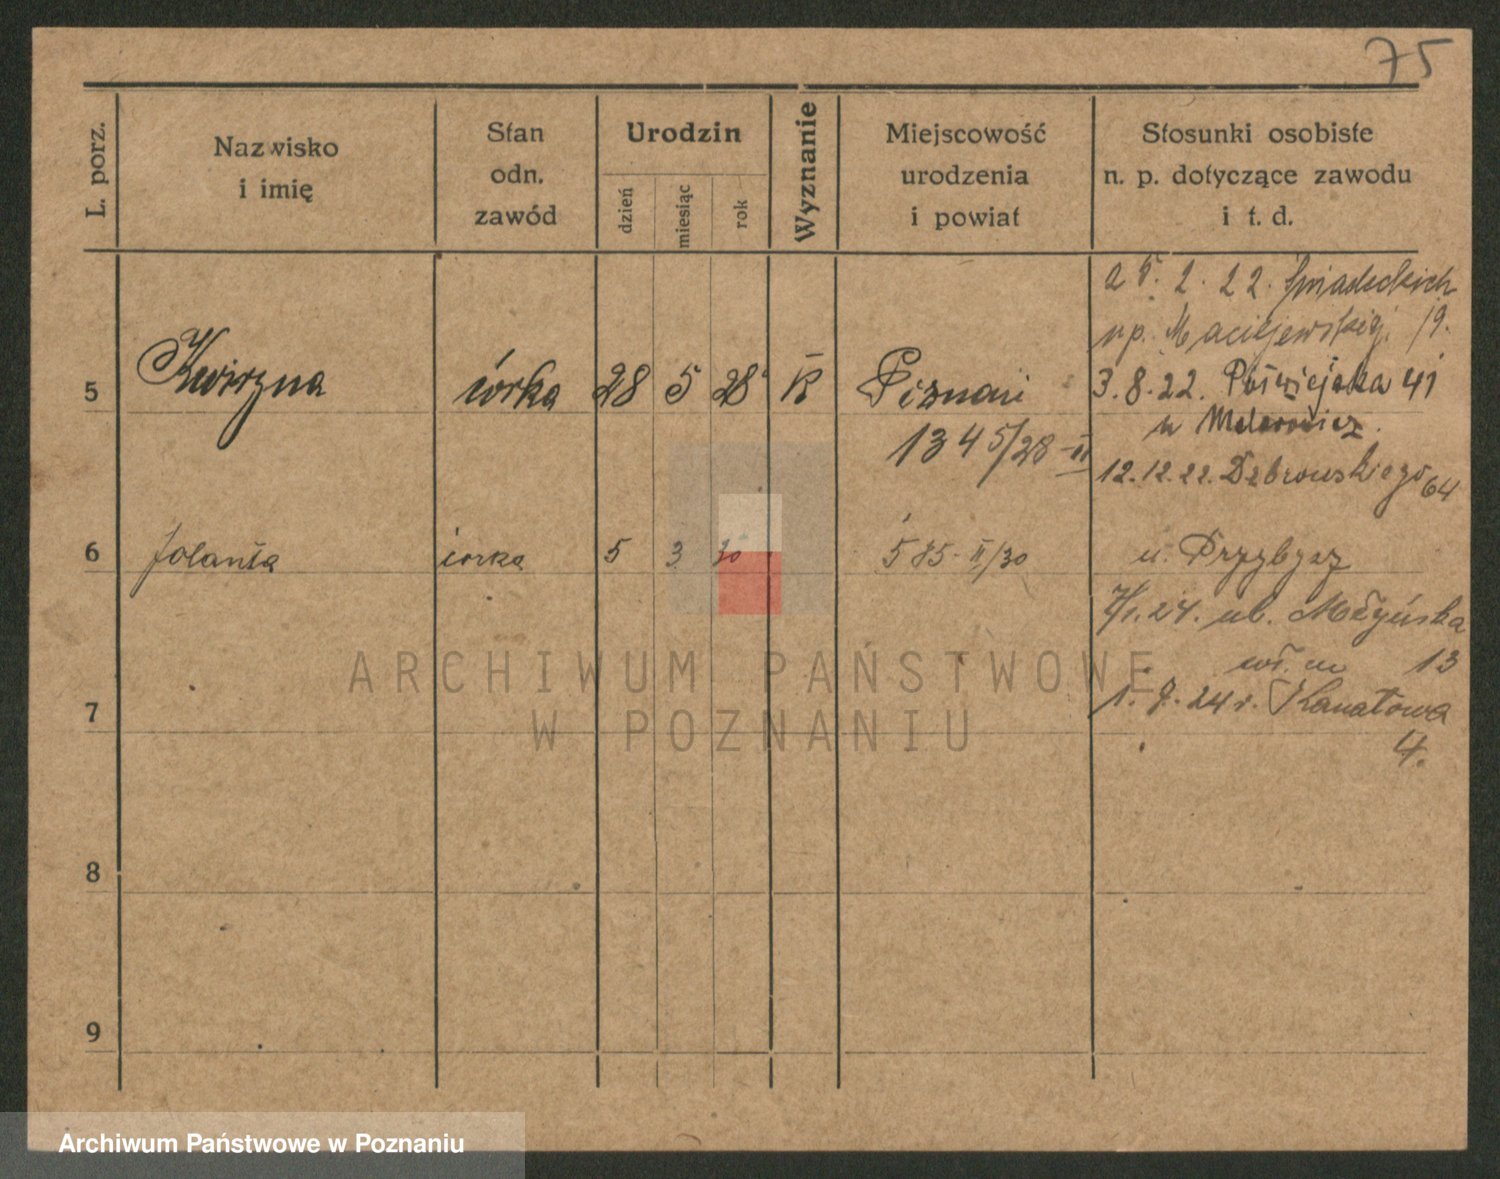 75
L. porz.
Nazwisko
i imię
Stan
odn.
zawód
Urodzin
dzień
miesiąc
rok
Wyznanie
Miejscowość
urodzenia
i powiat
Stosunki osobiste
n. p. dotyczące zawodu
i t. d.
25. 2. 22. Śniadeckich
u p. Maciejewskiej 19.
5 córka 28 5 28 K Poznań
3. 8. 22. 41
u
1345/28-II
12.12.22. Dąbrowskiego 64
6 Jolanta córka 5 3 30 585-II/30
u. Przybysz
7/1.24. ul. Młyńska
13
7
1. 9. 24 r. Kanałowa
4.
8
9
ARCHIWUM PAŃSTWOWE
W POZNANIU
Archiwum Państwowe w Poznaniu